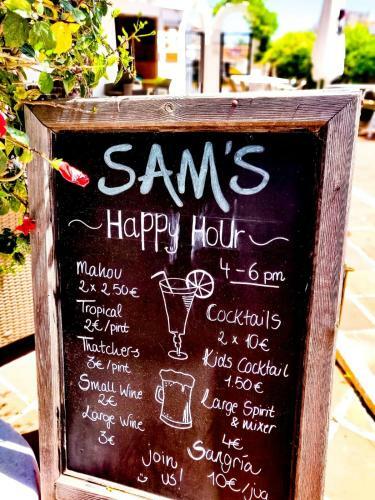 SAM'S
Happy Hour
4 - 6 pm
Mahou
2 x 2.50€
Tropical
2€/pint
Thatchers
3€/pint
Small Wine
2€
Large Wine
3€
Cocktails
2 x 10€
Kids Cocktail
1.50€
Large Spirit
& mixer
4€
Sangría
10€/jug
join
us!